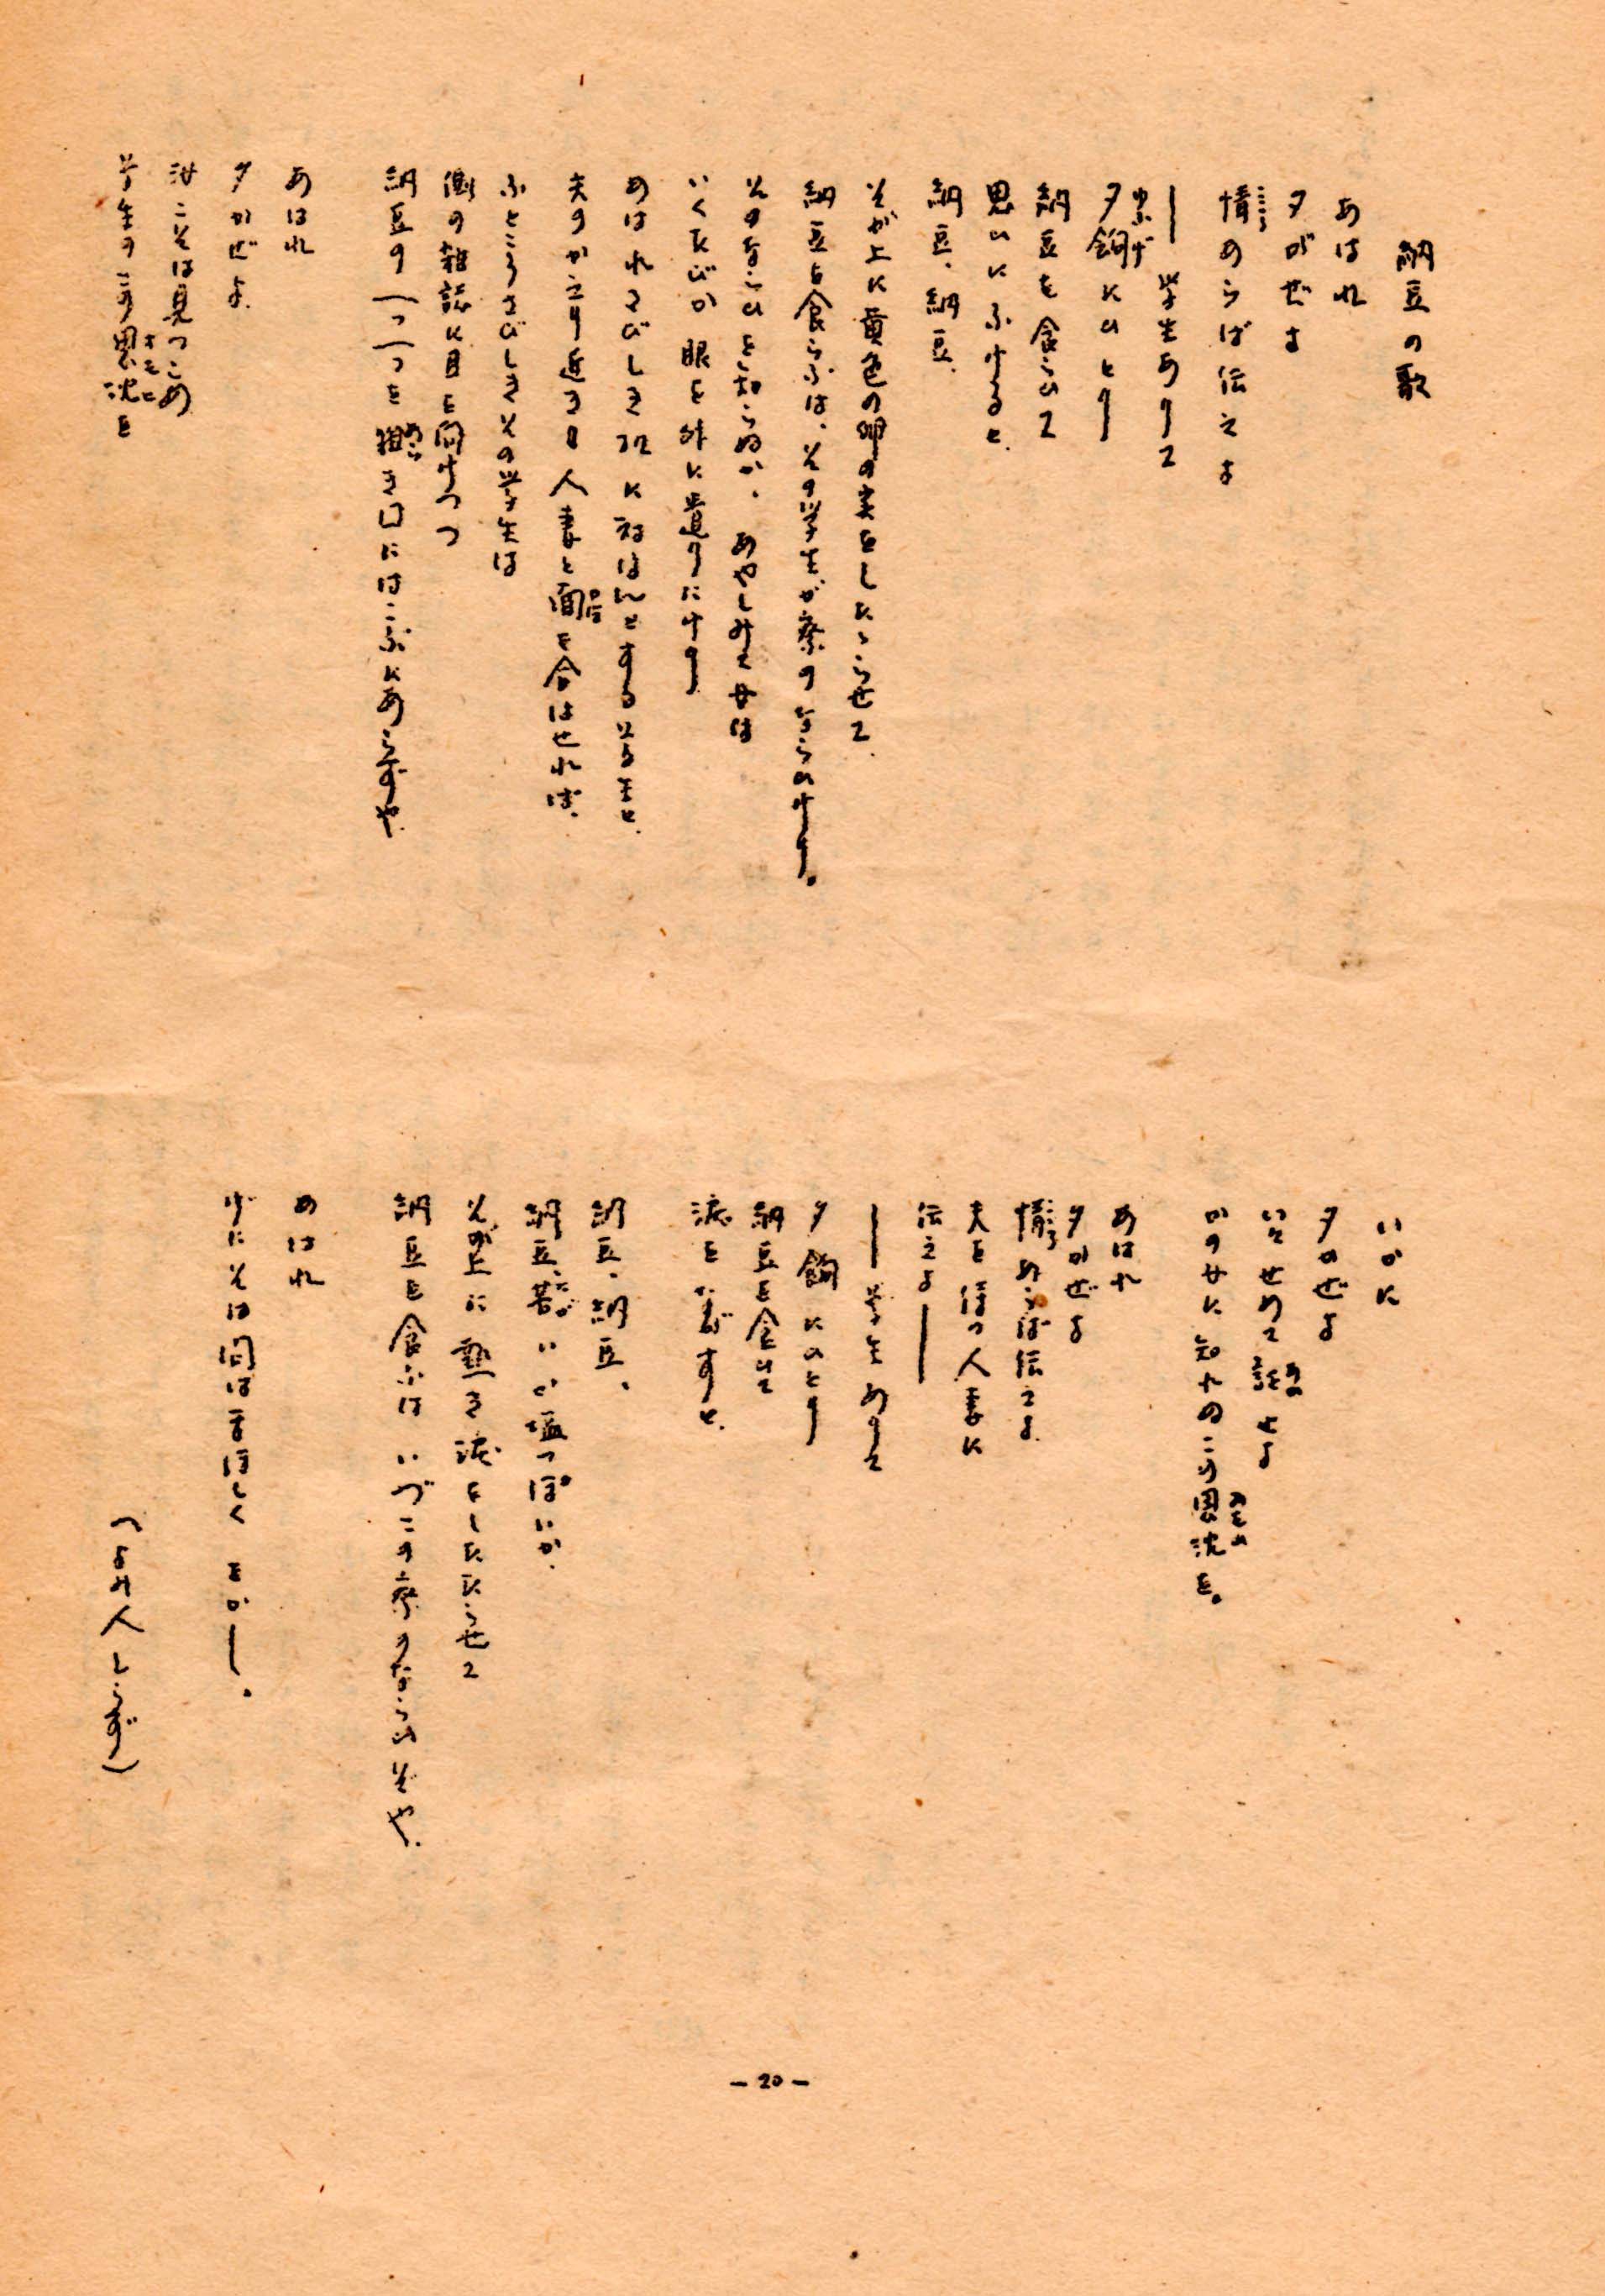 納豆の歌
あはれ
夕がぜよ
情あらば伝えよ
― 学生ありて
夕餉にひとり
納豆を食らひて
思ひにふけると。
納豆、納豆、
そが上に黄色の卵の実をしたゝらせて、
納豆を食らふは、その学生が寮のならひなり。
そのならひを知らぬか、あやしみて女は
いくたびか眼を外に遣りにけり
あはれさびしき
夫のかえり近き人妻と面を合はせれば、
ふところさびしきその学生は
側の雑誌に目を向けつつ
納豆の一つ一つを粗き口にはこぶにあらずや、
あはれ
夕かぜよ、
汝こそは見つらめ
学生のこの思沈を
いかに
夕かぜよ
いとせめて証せよ
かの女に知れのこの思沈を。
あはれ
夕かぜよ
情あらば伝えよ、
夫をまつ人妻に
伝えよ―
― 学生ありて
夕餉にひとり
納豆を食ひて
涙をながすと、
納豆、納豆、
納豆、苦いか塩っぽいか、
そが上に熱き涙をしたたらせて
納豆を食ふはいづこの寮のならひぞや、
あはれ
げにそは問はまほしくをかし。
(よみ人しらず)
－20－